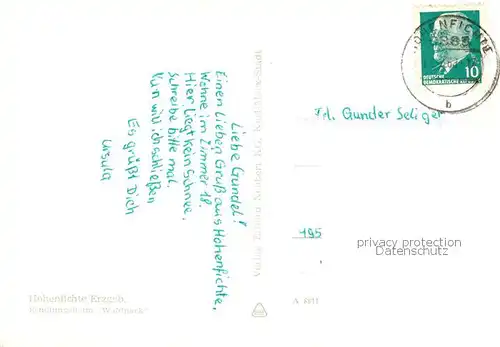 HOHENFICHTE
10
DEUTSCHE
DEMOKRATISCHE
b
Liebe Gundel!
Einen Lieben Gruß aus Hohenfichte,
Wohne im Zimmer 18.
Hier liegt kein Schnee,
Schreibe bitte mal.
Nun will ich schließen
Es grüßt Dich
Ursula
Frl. Gunder Seliger
195
privacy protection
www.ansichtskarten-center.de
Hohenfichte Erzgeb.
"Waldpark"
Verlag Erhard Neubert KG, Karl-Marx-Stadt